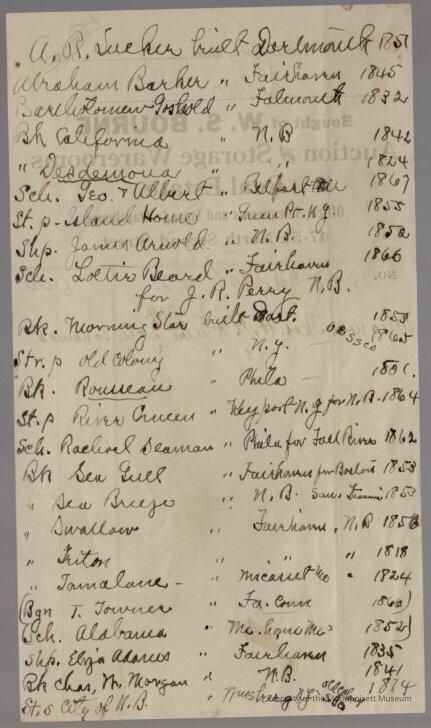 A. R. Tucker built Dartmouth 1851
Abraham Barker " Fairhaven 1845
Bartholomew Gosnold " Falmouth 1832
Bk California " N.B 1842
" Desdemona " " 1824
Sch. Geo. & Albert " Belfast Me 1867
St. p - Island Home " Green Pt. N.Y 1855
Shp. James Arnold. " N.B. 1852
Sch. Lottie Beard " Fairhaven 1866
for J. R. Perry N.B.
Bk. Morning Star built Dart. 1853
Str. p Old Colony " N.Y. — 1865
Bk. Rousseau " Phila — 1801.
St. p River Queen " Keyport N.J for N.B. 1864
Sch. Rachel Seaman " Phila for Fall River 1862
Bk Sea Gull " Fairhaven for Boston 1853
" Sea Breeze " N.B. San. Francis 1853
" Swallow " Fairhaven, N.B 1856
" Triton " " " 1818
" Tamerlane - " Wiscasset Me " 1824
(Bgn T. Towner " Fa. Conn 1860)
Sch. Alabama " Me 1852)
Shp. Eliza Adams " Fairhaven 1835
Bk Chas. W. Morgan " N.B. 1841
St. s City of N.B. " 1874
Bought of W. S. BOURNE
Auction & Storage Warerooms
Museum